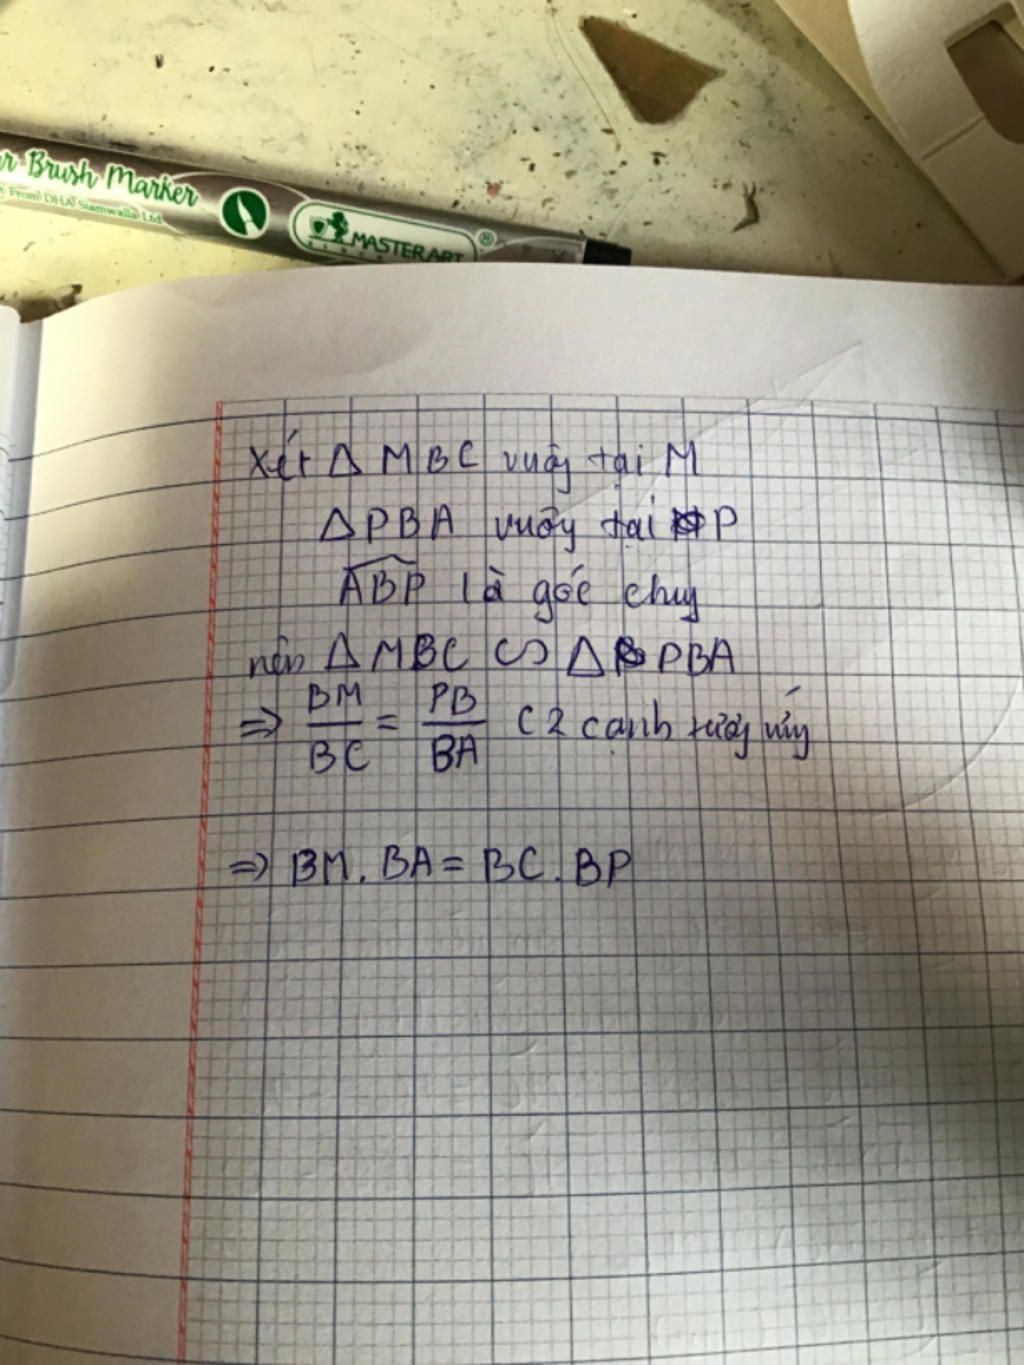 Brush Marker
From DHA Siamwalla Ltd
MASTERART
®
Xét Δ MBC vuông tại M
ΔPBA vuông tại P
ABP là góc chung
nên Δ MBC ∽ Δ PBA
=> BM/BC = PB/BA ( 2 cạnh tương ứng
=> BM. BA = BC. BP